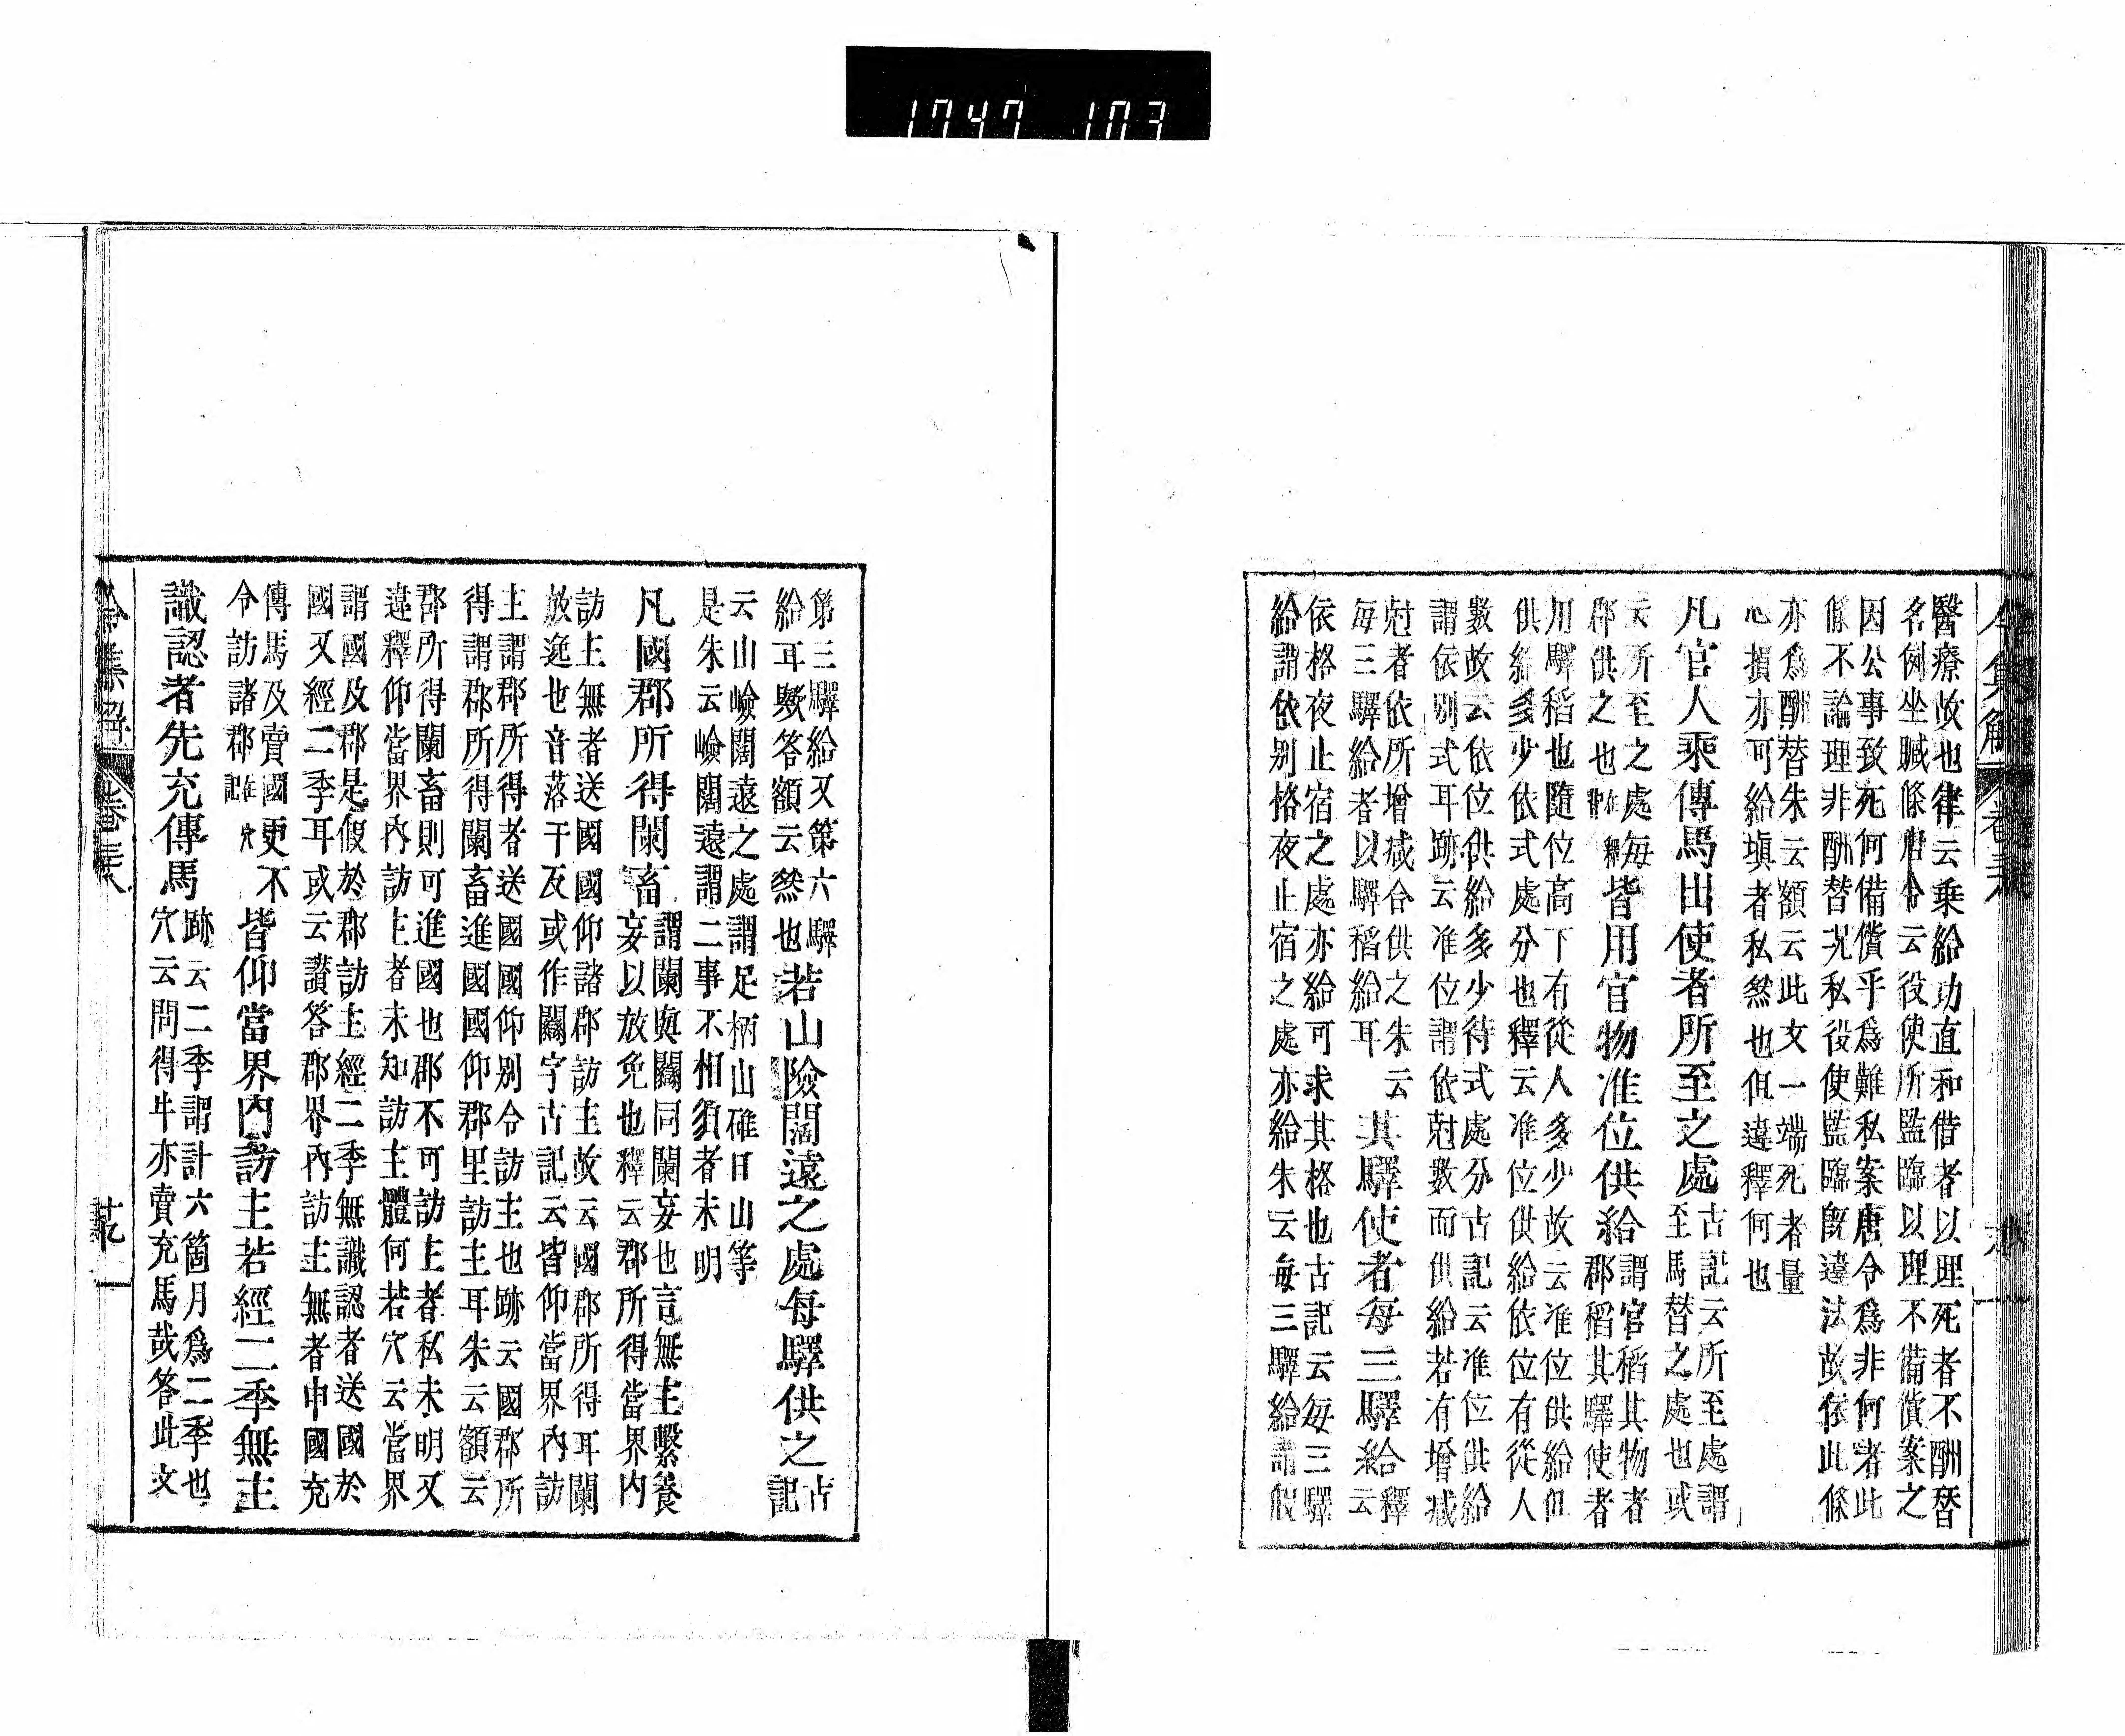 1747 103
令集解 卷三十八
醫療故也律云乗給功直和借者以理死者不酬替
名例坐贓條唐令云役使所監臨以理不備償案之
因公事致死何備償乎爲難私案唐令爲非何者此
條不論理非酬替況私役使監臨既違法故依此條
亦爲酬替朱云額云此文一端死者量
心損亦可給塡者私然也但違釋何也
凡官人乘傳馬出使者所至之處
古記云所至處謂
至馬替之處也或
云所至之處每
郡供之也
皆用官物准位供給
謂官稻其物者
郡稻其驛使者
用驛稻也隨位高下有從人多少故云准位供給但
供給多少依式處分也釋云准位供給依位有從人
數故云依位供給多少待式處分古記云准位供給
謂依別式耳跡云准位謂依尅數而供給若有增減
尅者依所增減合供之朱云
每三驛給者以驛稻給耳
其驛使者每三驛給
釋
云
依格夜止宿之處亦給可求其格也古記云每三驛
給謂依別格夜止宿之處亦給朱云每三驛給謂假
第三驛給又第六驛
給耳歟答額云然也
若山險闊遠之處每驛供之
古
記
云山嶮闊遠之處謂足柄山碓日山等
是朱云嶮闊遠謂二事不相須者未明
凡國郡所得闌畜
謂闌與闌同闌妄也言無主繫養
妄以放免也釋云郡所得當界内
訪主無者送國國仰諸郡訪主故云國郡所得耳闌
放逸也音落干反或作闌字古記云皆仰當界内訪
主謂郡所得者送國國仰別令訪主也跡云國郡所
得謂郡所得闌畜進國國仰郡里訪主耳朱云額云
郡所得闌畜則可進國也郡不可訪主者私未明又
違釋仰當界内訪主者未知訪主體何若穴云當界
謂國及郡是假於郡訪主經二季無識認者送國於
國又經二季耳或云讃答郡界内訪主無者申國充
傳馬及賣國更不
令訪諸郡
皆仰當界内訪主若經二季無主
識認者先充傳馬
跡云二季謂計六箇月爲二季也
穴云問得牛亦賣充馬哉答此文
令集解 卷三十八